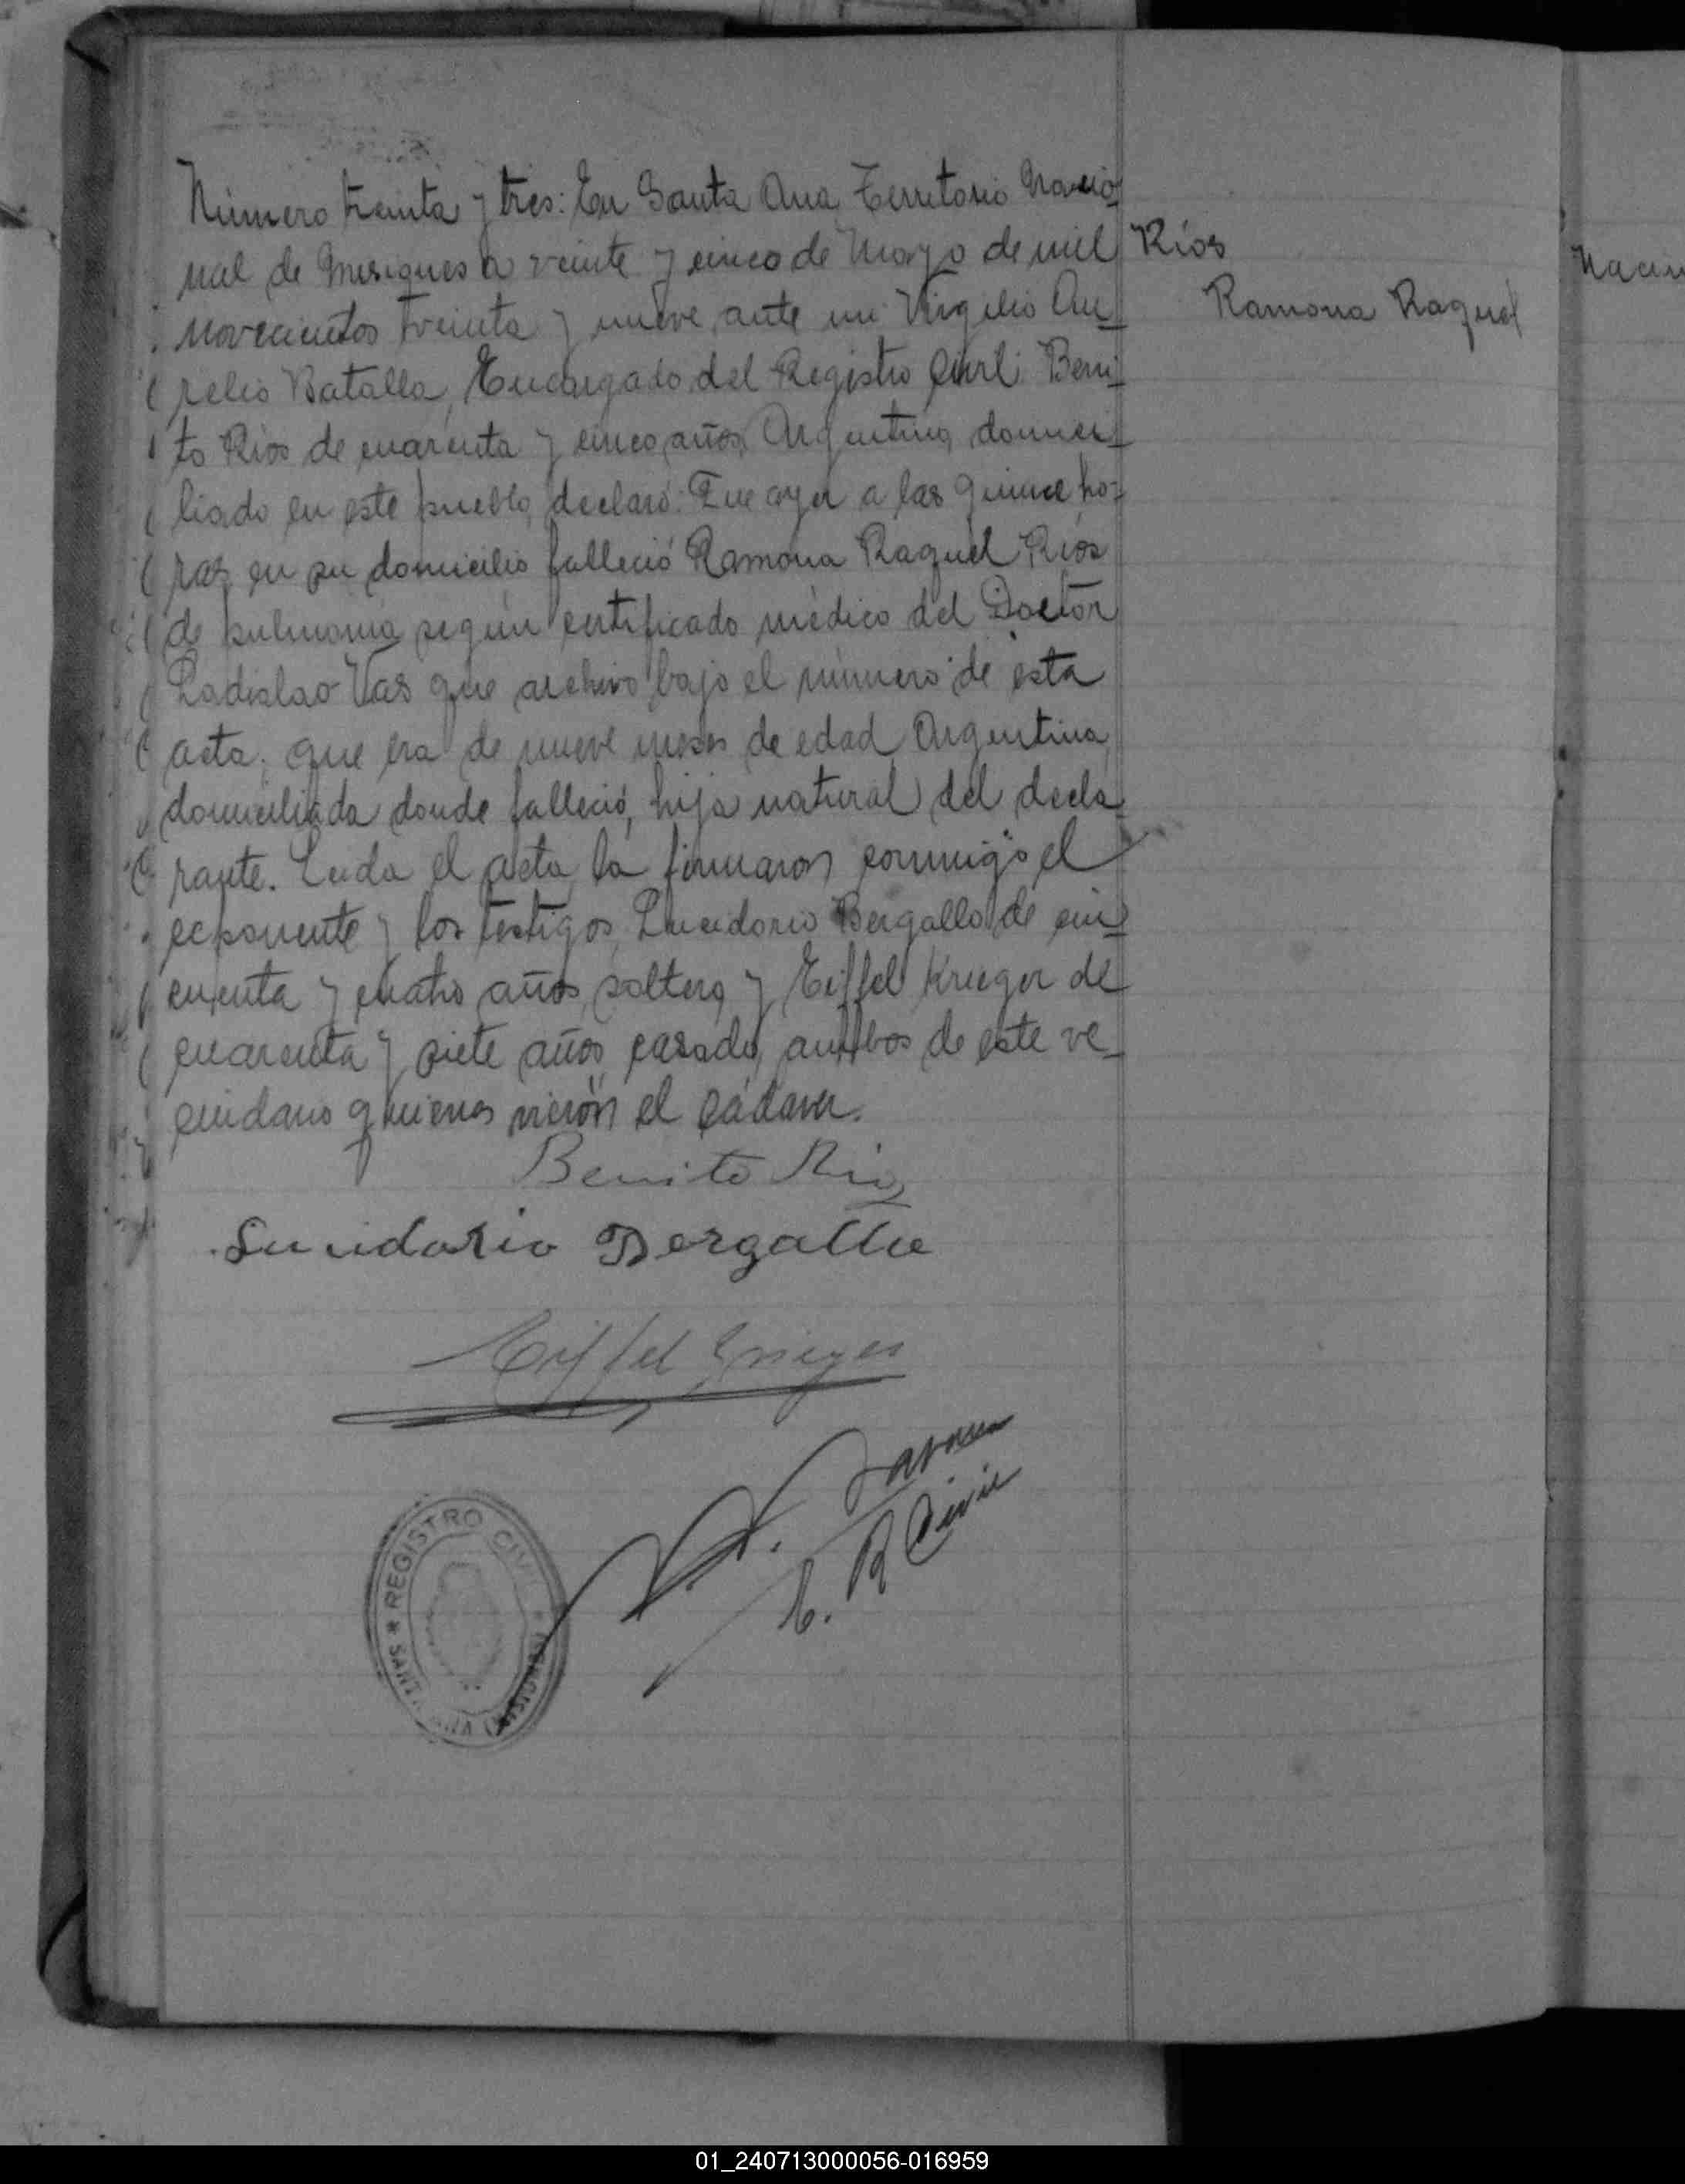 Número treinta y tres: En Santa Ana, Territorio Nacio-
nal de Misiones a veinte y cinco de Mayo de mil
novecientos treinta y nueve, ante mi Virgilio Au-
relio Batalla, Encargado del Registro Civil: Beni-
to Ríos de cuarenta y cinco años, Argentino, domici-
liado en este pueblo, declaró: Que ayer a las quince ho-
ras, en su domicilio falleció Ramona Raquel Ríos
de pulmonía, según certificado médico del Doctor
Ladislao Vas que archivo bajo el número de esta
acta; que era de nueve meses de edad, Argentina,
domiciliada donde falleció, hija natural del decla
rante. Leida el acta, la firmaron conmigo el
exponente y los testigos, Lucidorio Bergallo de cin-
cuenta y cuatro años, soltero, y Eiffel Krieger de
cuarenta y siete años, casado, ambos de este ve-
cindario quienes vieron el cádaver.
Benito Rios
Lucidorio Bergallo
Eiffel
E. R Civil
REGISTRO CIVIL * SANTA ANA (MISIONES) *
Ríos
Ramona Raquel
01_240713000056-016959